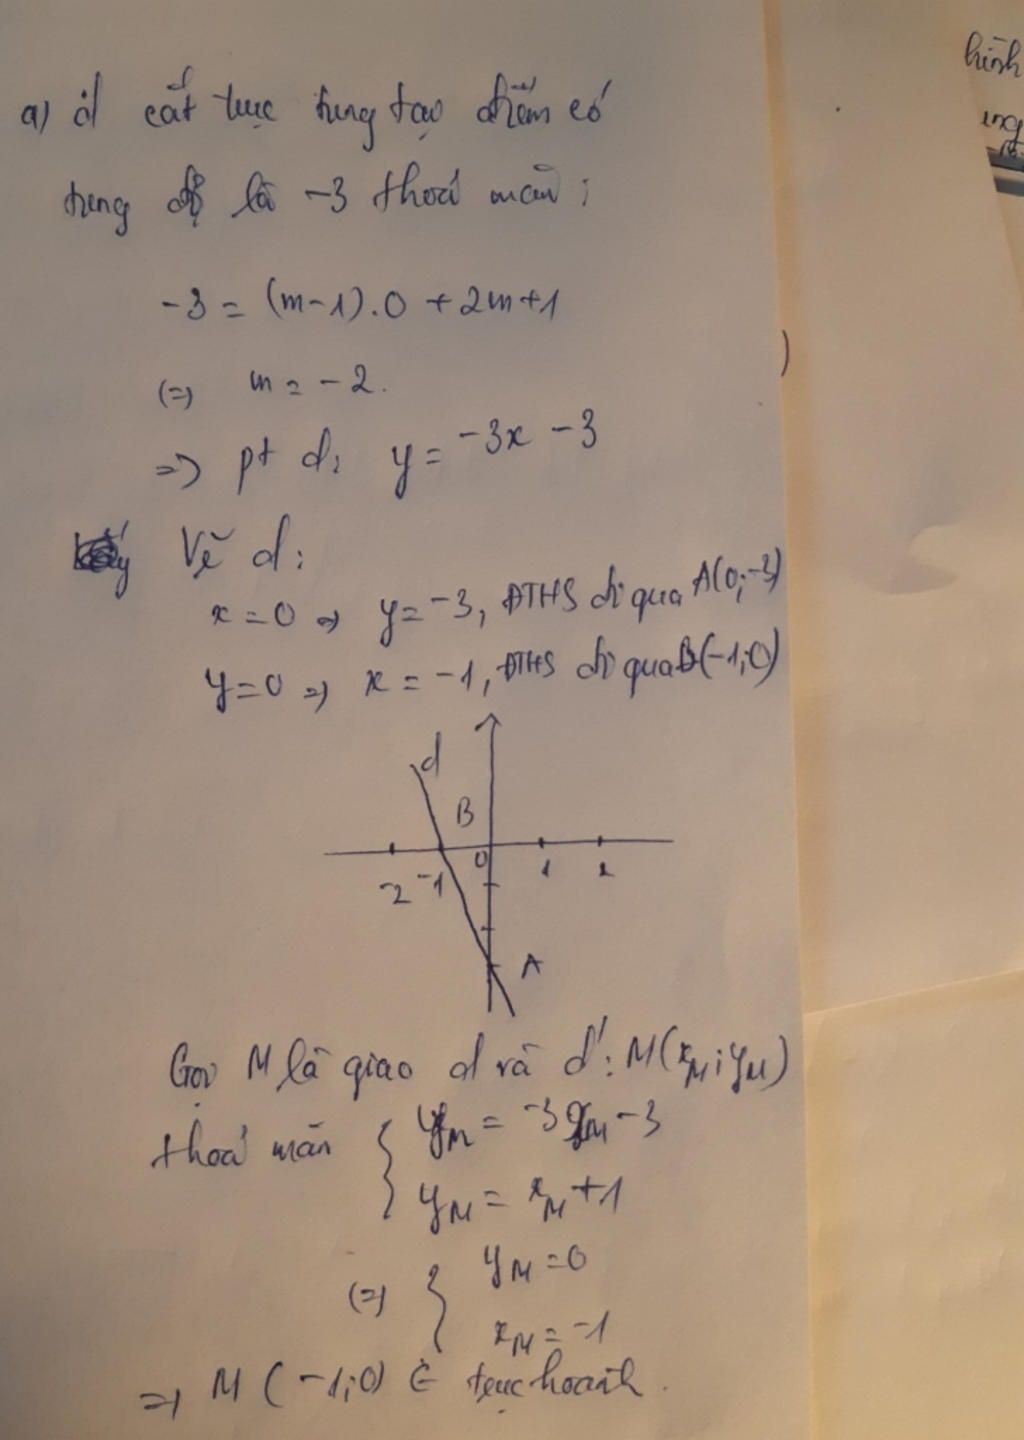 a) d cắt trục tung tạo điểm có
tung độ là -3 thoả mãn:
-3 = (m-1).0 + 2m+1
(=) m = -2.
=> pt d: y = -3x - 3
Vẽ d:
x = 0 => y = -3, ĐTHS đi qua A(0;-3)
y = 0 => x = -1, ĐTHS đi qua B(-1;0)
d
B
-2 -1 0 1 2
A
Gọi M là giao d và d': M(xM; yM)
thoả mãn { yM = -3xM - 3
yM = xM + 1
(=) { yM = 0
xM = -1
=> M (-1;0) ∈ trục hoành.
hình
ung
)